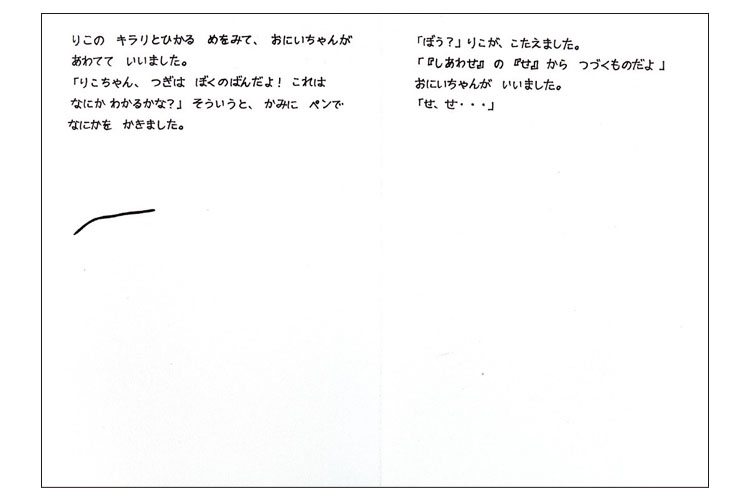 りこの キラリとひかる めをみて、 おにいちゃんが
あわてて いいました。
「りこちゃん、 つぎは ぼくのばんだよ! これは
なにか わかるかな?」 そういうと、 かみに ペンで
なにかを かきました。
「ぼう?」りこが、こたえました。
「『しあわせ』 の 『せ』 から つづくものだよ 」
おにいちゃんが いいました。
「せ、せ・・・」